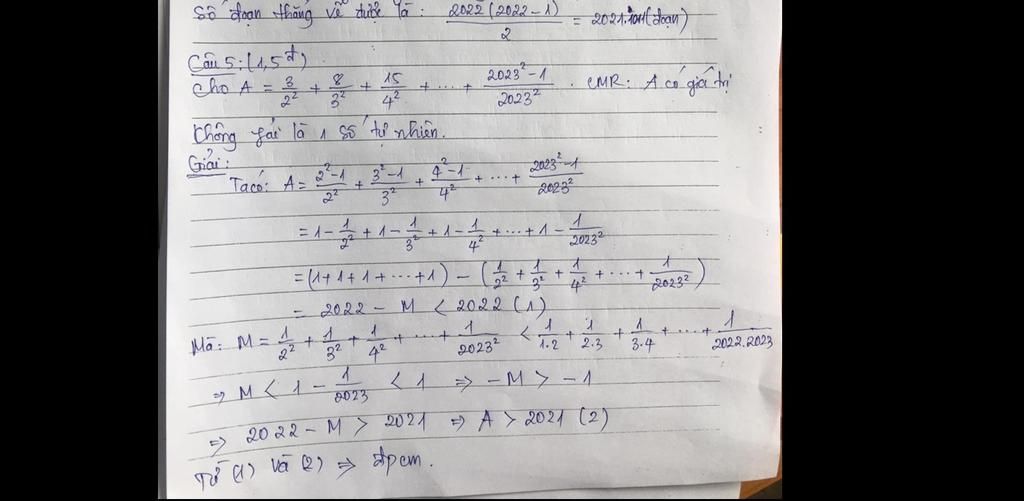 Số đoạn thẳng vẽ được là: 2022(2022-1)/2 = 2021.1011(đoạn)
Câu 5: (1,5đ)
Cho A = 3/2² + 8/3² + 15/4² + ... + 2023²-1/2023² . CMR: A có giá trị
không fải là 1 số tự nhiên.
Giải:
Ta có: A = 2²-1/2² + 3²-1/3² + 4²-1/4² + ... + 2023²-1/2023²
= 1 - 1/2² + 1 - 1/3² + 1 - 1/4² + ... + 1 - 1/2023²
= (1+1+1+...+1) - (1/2² + 1/3² + 1/4² + ... + 1/2023²)
= 2022 - M < 2022 (1)
Mà: M = 1/2² + 1/3² + 1/4² + ... + 1/2023² < 1/1.2 + 1/2.3 + 1/3.4 + ... + 1/2022.2023
⇒ M < 1 - 1/2023 < 1 ⇒ -M > -1
⇒ 2022 - M > 2021 ⇒ A > 2021 (2)
Từ (1) và (2) ⇒ đpcm.